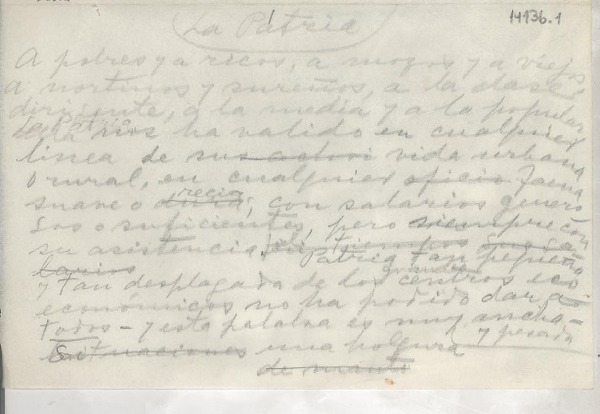 14136.1
La Patria
A pobres y a ricos, a mozos y a viejos,
a nortinos y sureños, a la clase
dirigente, a la media y a la popular
la Patria nos ha valido en cualquier
línea de su vida urbana
o rural, en cualquier oficio faena
suave o dura, recia con salarios genero
sos o suficientes, pero siempre con
su asistencia. tiempos
Patria tan pequeña
y tan desplegada de los grandes centros eco
económicos no ha podido dar a
todos - y esta palabra es muy ancha -
y pesada
situaciones una holgura
de manto